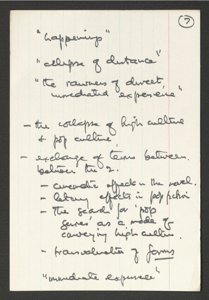 7
"happenings"
"collapse of distance"
"the rawness of direct,
unmediated experience"
- the collapse of high culture
& pop culture.
- exchange of terms between
between the 2.
- cinematic effects in the novel.
- literary effects in pop fiction
- the search for 'pop
genres' as a mode of
conveying high culture.
- transvaluation of forms
"immediate experience"